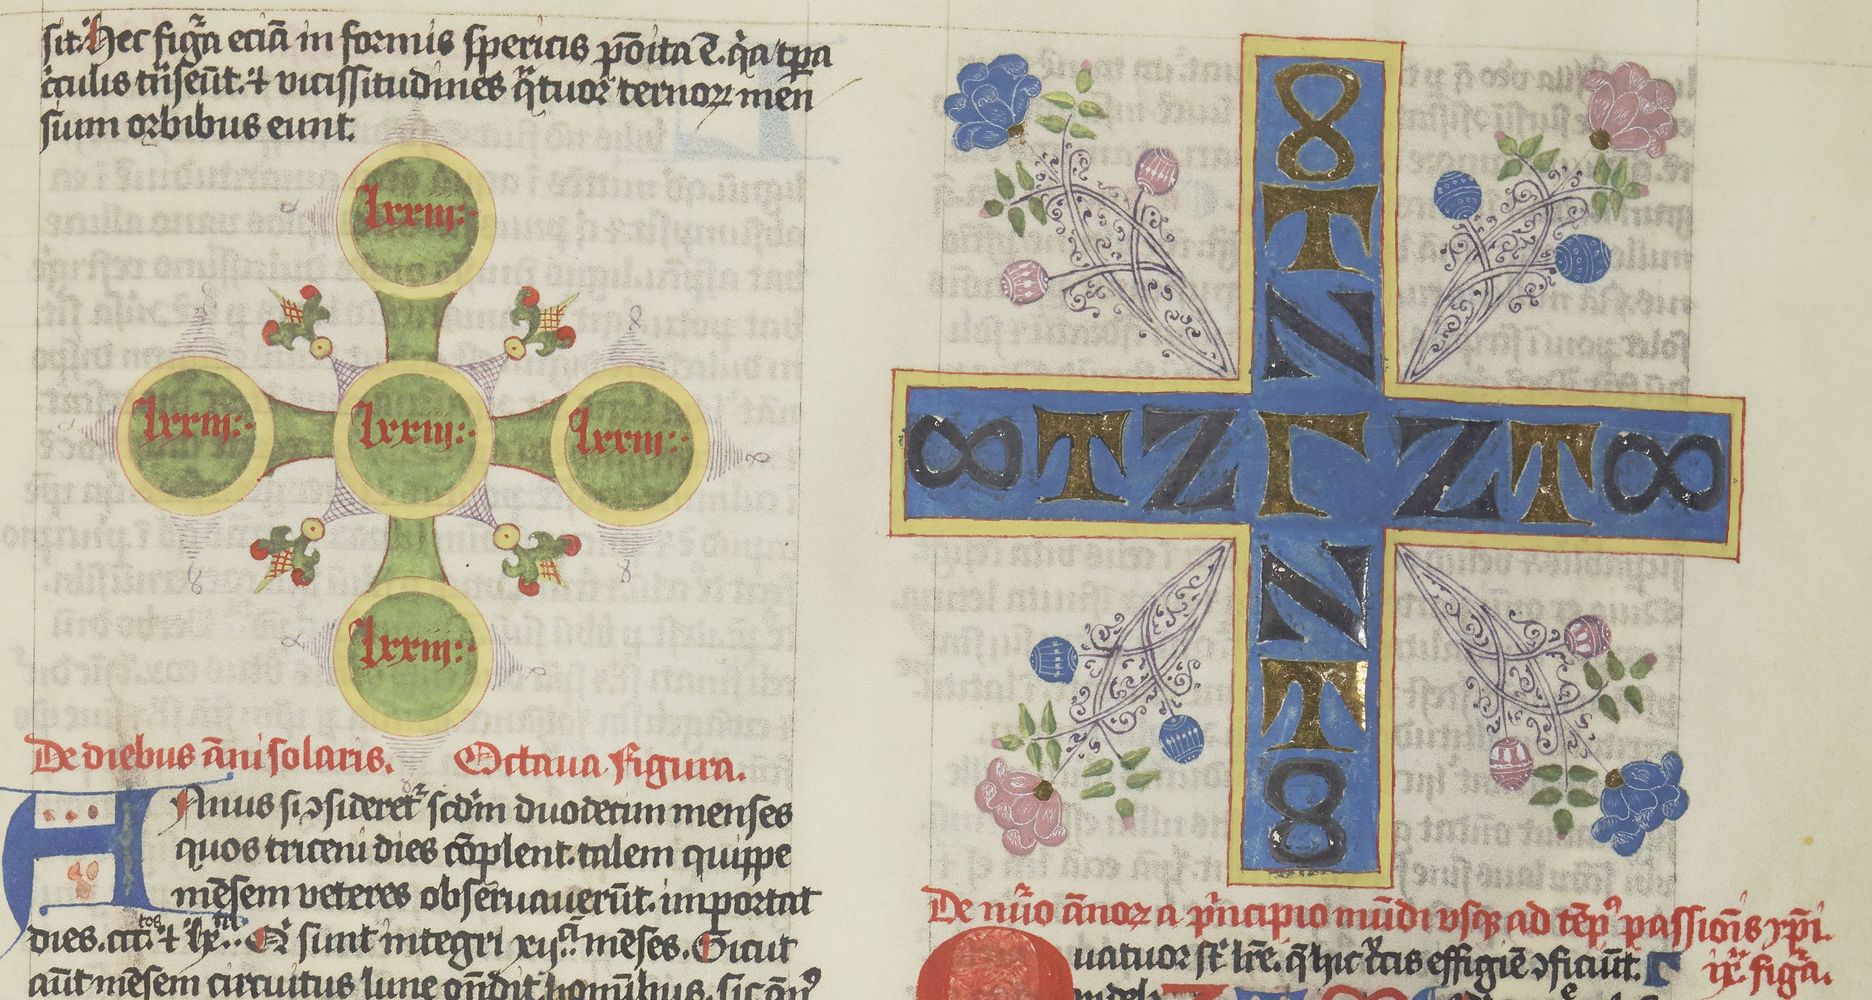 sit. Hec figᷓa eciā in formis spericis pōita ē. q̄a tp̄a
cͥculis tñseūt. ⁊ vicissitudines qᷓtuor ternoꝝ men
sium orbibus eunt.
lxxiii:·
lxxiii:·
lxxiii:·
lxxiii:·
lxxiii:·
De diebus āni solaris. Octaua figura.
Annus si ↄsideret᷑ scd̄m duodecim menses
quos triceni dies cōplent. talem quippe
mēsem veteres obseruauerūt. importat
dies. ccc.tos ⁊ lx. Qͥ sunt integri xij. mēses. Sicut
aūt mēsem circuitus lune oñdit hominibus. sic
8
T
Z
8 T Z Γ Z T 8
Z
T
8
De nūo ānoꝝ a pͥncipio mūdi vsqꝫ ad tēpꝰ passiōis xp̄i.
Quatuor st̄ lr̄e. q̄ hic cͬcis effigiē ↄficiūt. Γ ix. figᷓa.